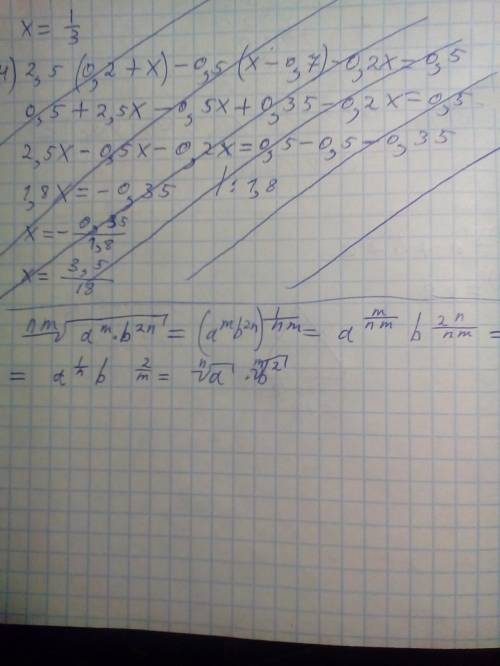 x = 1/3
4) 2,5 (0,2 + x) - 0,5 (x - 0,7) - 0,2x = 0,5
0,5 + 2,5x - 0,5x + 0,35 - 0,2x = 0,5
2,5x - 0,5x - 0,2x = 0,5 - 0,5 - 0,35
1,8x = - 0,35 /: 1,8
x = - 0,35/1,8
x = 3,5/18
ⁿᵐ√(aᵐ · b²ⁿ) = (aᵐb²ⁿ)^(1/nm) = a^(m/nm) b^(2n/nm) =
= a^(1/n) b^(2/m) = ⁿ√a · ᵐ√b²